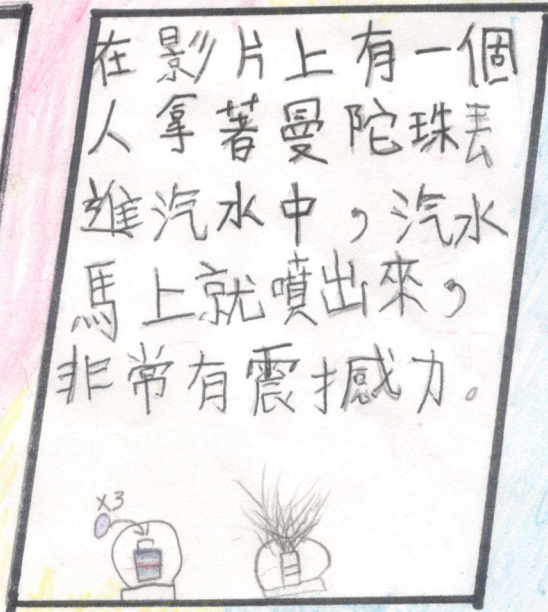 在影片上有一個
人拿著曼陀珠丟
進汽水中，汽水
馬上就噴出來，
非常有震撼力。
x3